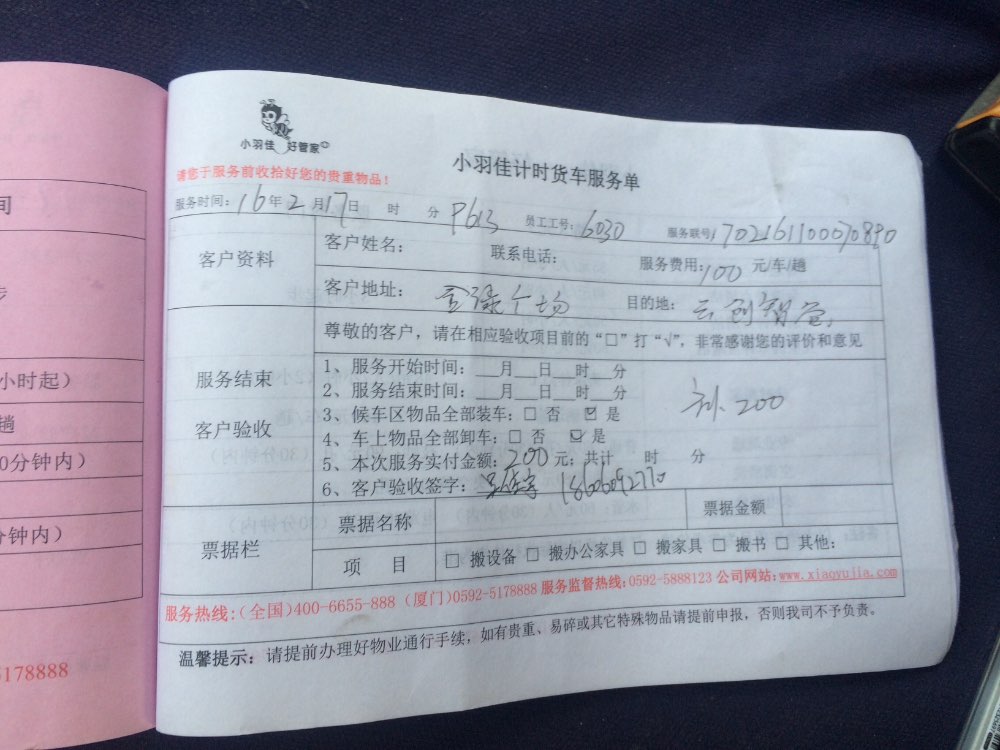 间
步
小时起）
趟
0分钟内）
分钟内）
5178888
小羽佳 好管家
小羽佳计时货车服务单
请您于服务前收拾好您的贵重物品！
服务时间：16年2月17日 时 分 P613 员工工号：6030 服务联号：1702161100070890
客户资料
客户姓名： 联系电话： 服务费用：100元/车/趟
客户地址： 金禄广场 目的地： 云创智谷
服务结束
客户验收
尊敬的客户，请在相应验收项目前的“□”打“√”，非常感谢您的评价和意见
1、服务开始时间：__月__日__时__分
2、服务结束时间：__月__日__时__分
3、候车区物品全部装车：□ 否 ☑ 是
4、车上物品全部卸车：□ 否 ☑ 是
5、本次服务实付金额：200元；共计 时 分
6、客户验收签字： 18606092770
200
票据栏
票据名称 票据金额
项 目 □ 搬设备 □ 搬办公家具 □ 搬家具 □ 搬书 □ 其他：
服务热线：（全国）400-6655-888（厦门）0592-5178888 服务监督热线：0592-5888123 公司网站：www.xiaoyujia.com
温馨提示：请提前办理好物业通行手续，如有贵重、易碎或其它特殊物品请提前申报，否则我司不予负责。